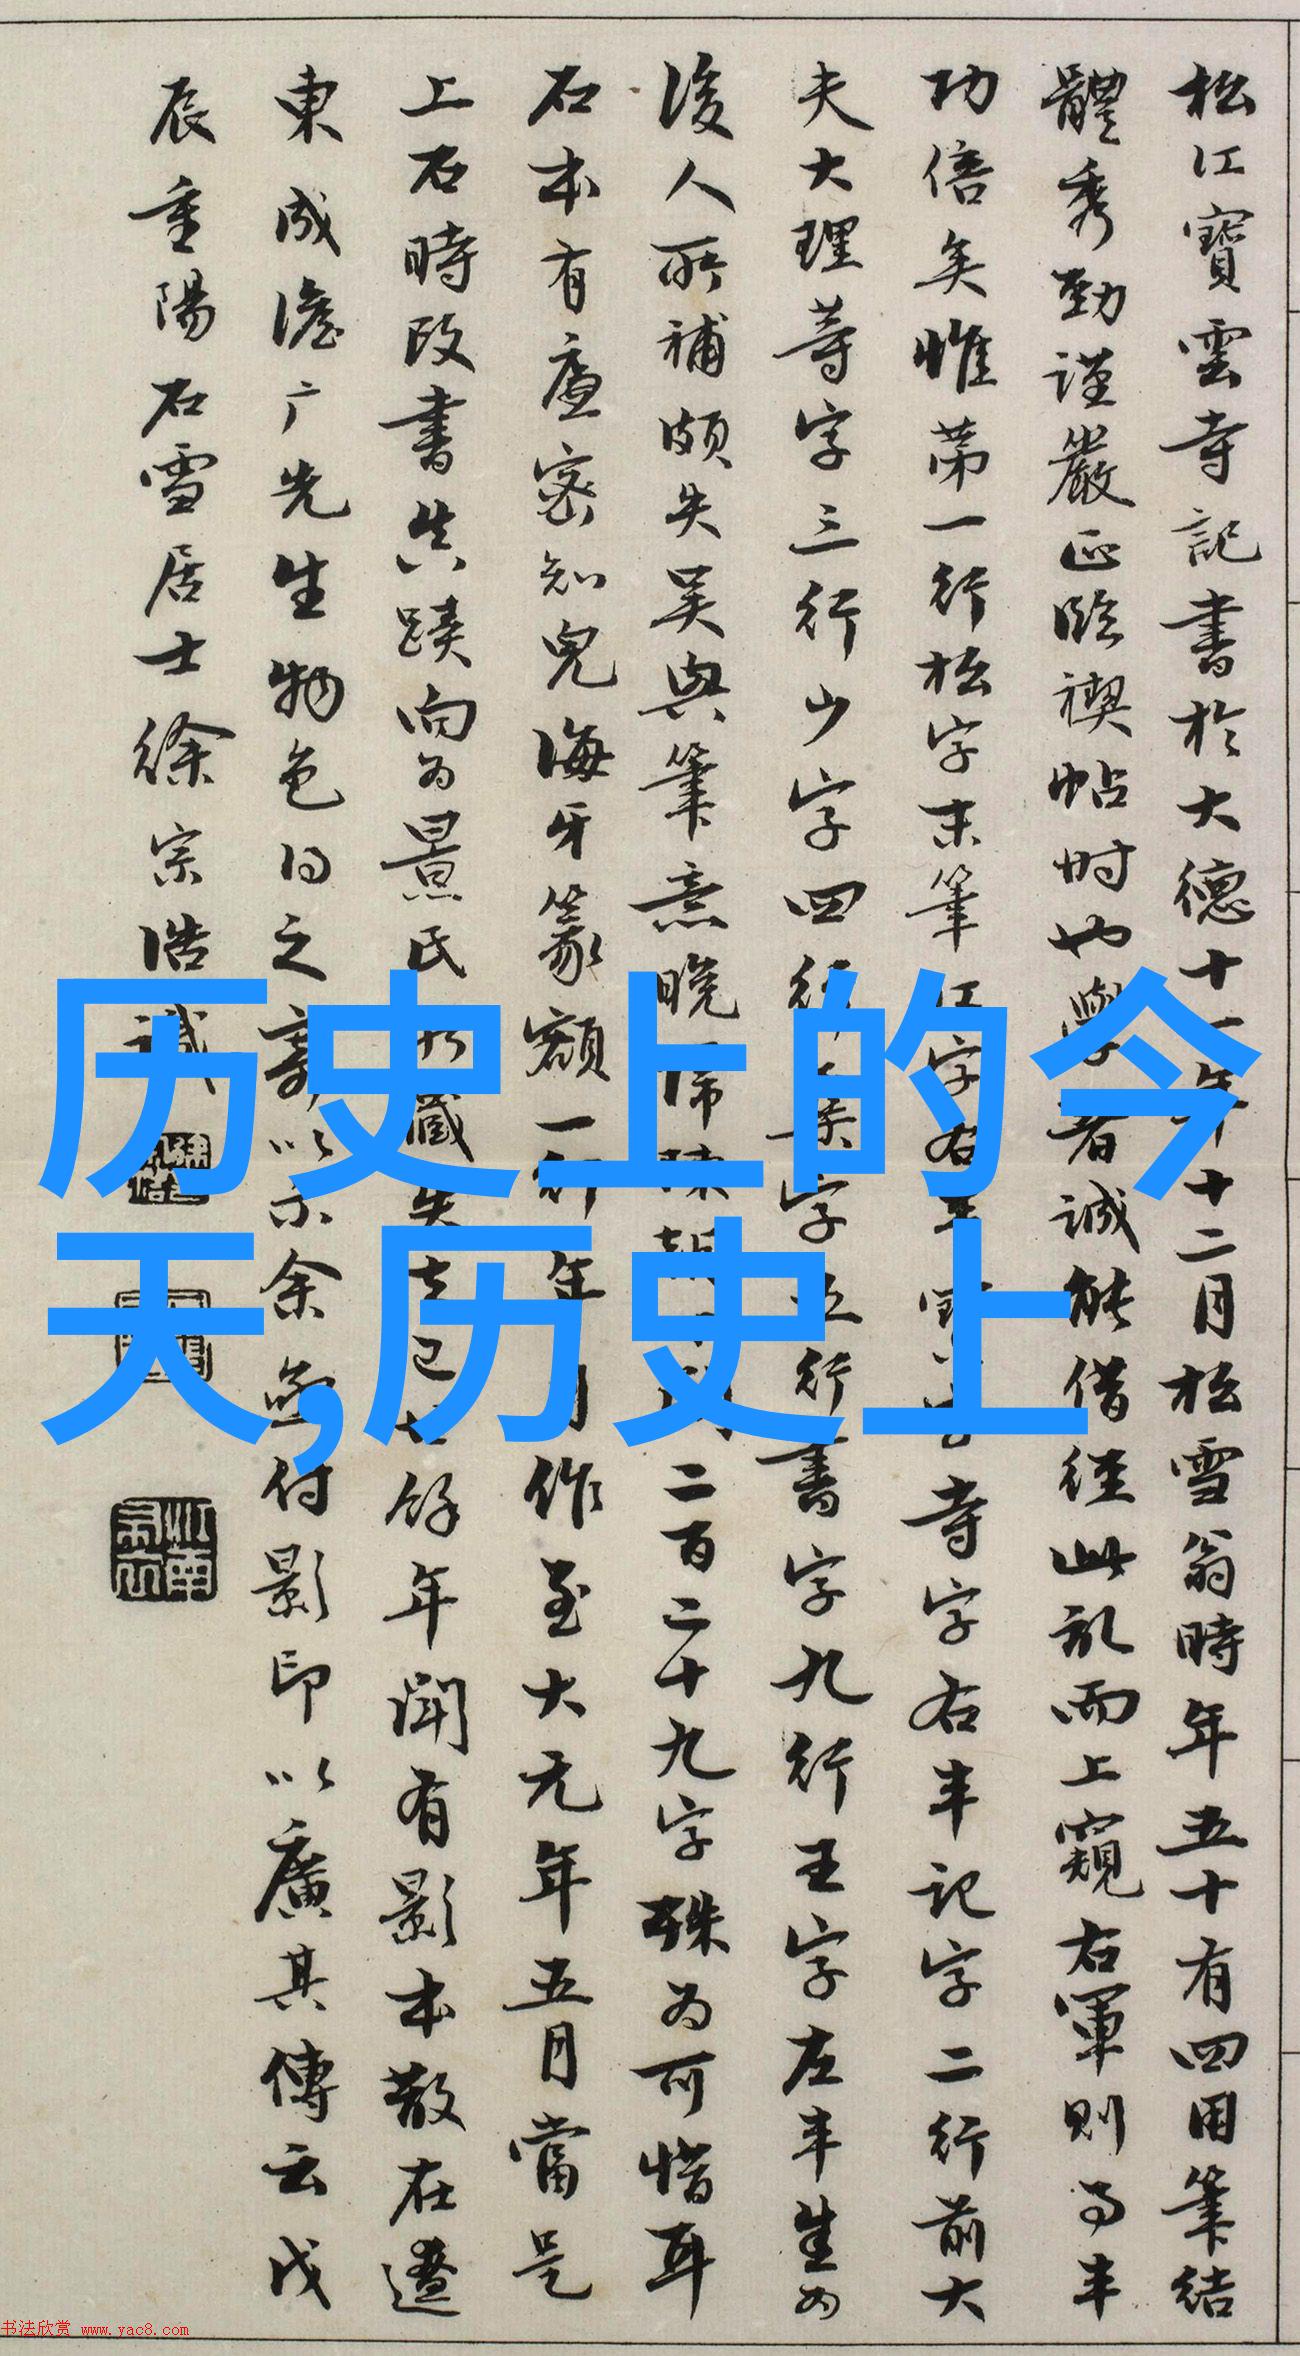 松江寶雲寺記書於大德十一年十二月松雪翁時年五十有四用筆結
體秀勁謹嚴正臨禊帖時也學者誠能借徑此刻而上窺右軍則事半
功倍矣惟第一行松字末筆江字右半寶雲寺字右半記字二行前大
夫大理等字三行少字四行字五行書字九行王字左半生如
後人所補頗失吳興筆意晚二百二十九字殊為可惜耳
石本有廉密知兒海牙篆額一行年月作至大元年五月當是
上石時改書真蹟向為景氏所藏失去已廿餘年聞有影本散在遼
東成澹广先生物色得之寄以示余亟付影印以廣其傳云戊
辰重陽石雪居士徐宗浩識
历史上的今
天,历史上
书法欣赏 www.yac8.com